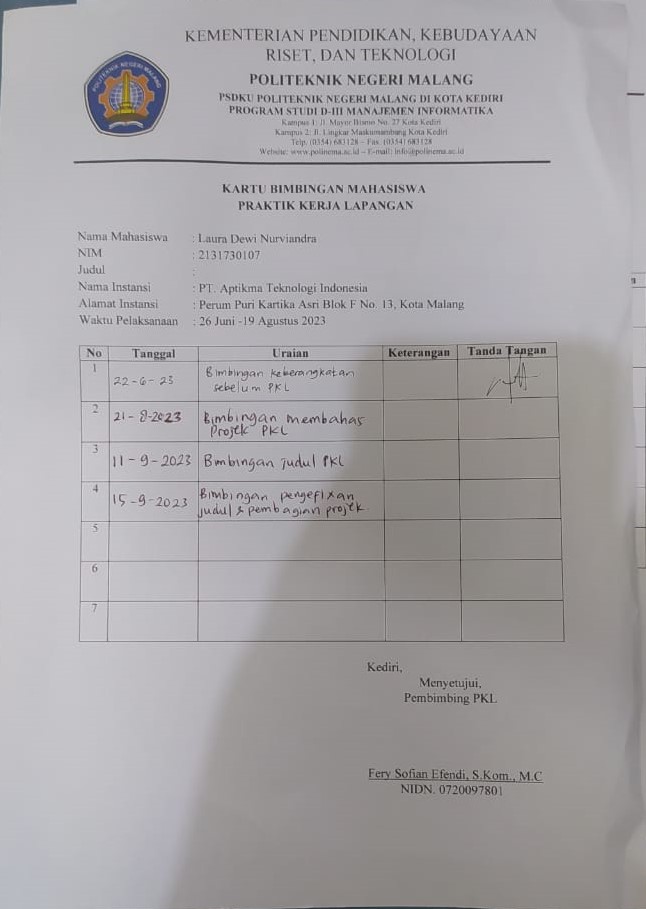 KEMENTERIAN PENDIDIKAN, KEBUDAYAAN
RISET, DAN TEKNOLOGI
POLITEKNIK NEGERI MALANG
PSDKU POLITEKNIK NEGERI MALANG DI KOTA KEDIRI
PROGRAM STUDI D-III MANAJEMEN INFORMATIKA
Kampus 1: Jl. Mayor Bismo No. 27 Kota Kediri
Kampus 2: Jl. Lingkar Maskumambang Kota Kediri
Telp. (0354) 683128 – Fax. (0354) 683128
Website: www.polinema.ac.id – E-mail: info@polinema.ac.id
POLITEKNIK NEGERI MALANG
KARTU BIMBINGAN MAHASISWA
PRAKTIK KERJA LAPANGAN
Nama Mahasiswa : Laura Dewi Nurviandra
NIM : 2131730107
Judul :
Nama Instansi : PT. Aptikma Teknologi Indonesia
Alamat Instansi : Perum Puri Kartika Asri Blok F No. 13, Kota Malang
Waktu Pelaksanaan : 26 Juni -19 Agustus 2023
No Tanggal Uraian Keterangan Tanda Tangan
1 22-6-23 Bimbingan keberangkatan
sebelum PKL
2 21-8-2023 Bimbingan membahas
Projek PKL
3 11-9-2023 Bimbingan judul PKL
4 15-9-2023 Bimbingan pengefixan
judul & pembagian projek.
5
6
7
Kediri,
Menyetujui,
Pembimbing PKL
Fery Sofian Efendi, S.Kom., M.C
NIDN. 0720097801